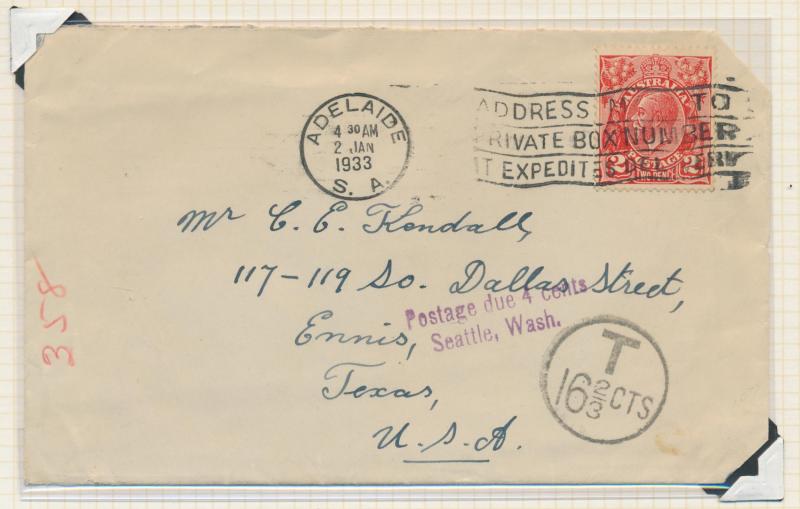 ADELAIDE
4 30 AM
2 JAN
1933
S. A.
ADDRESS TO
PRIVATE BOX NUMBER
IT EXPEDITES
AUSTRALIA
POSTAGE
2 2
TWO PENCE
Mr C. E. Kendall,
117-119 So. Dallas Street,
Ennis,
Texas,
U.S.A.
Postage due 4 cents
Seattle, Wash.
T
16 2/3 CTS
358